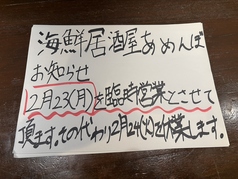 海鮮居酒屋あめんぼ
お知らせ
2月23(月)を臨時営業とさせて
頂ます。その代わり2月24(火)を休業します。